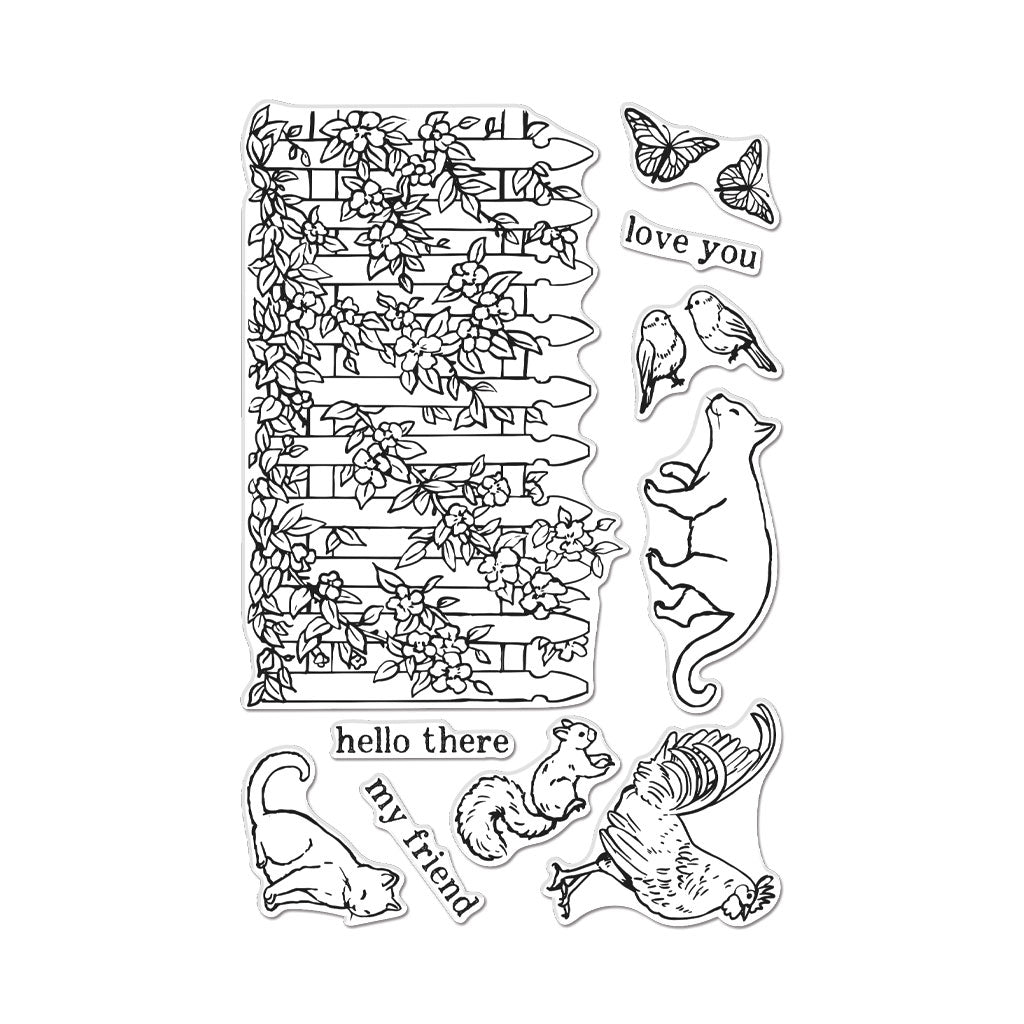 love you
hello there
my friend